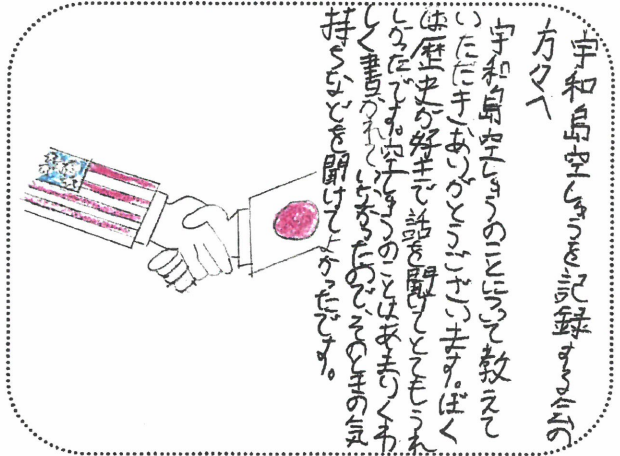 宇和島空しゅうを記録する会の
方々へ
宇和島空しゅうのことについて教えて
いただきありがとうございます。ぼく
は歴史が好きで話を聞けてとてもうれ
しかったです。空しゅうのことはあまりくわ
しく書かれていなかったので、そのときの気
持ちなどを聞けてよかったです。